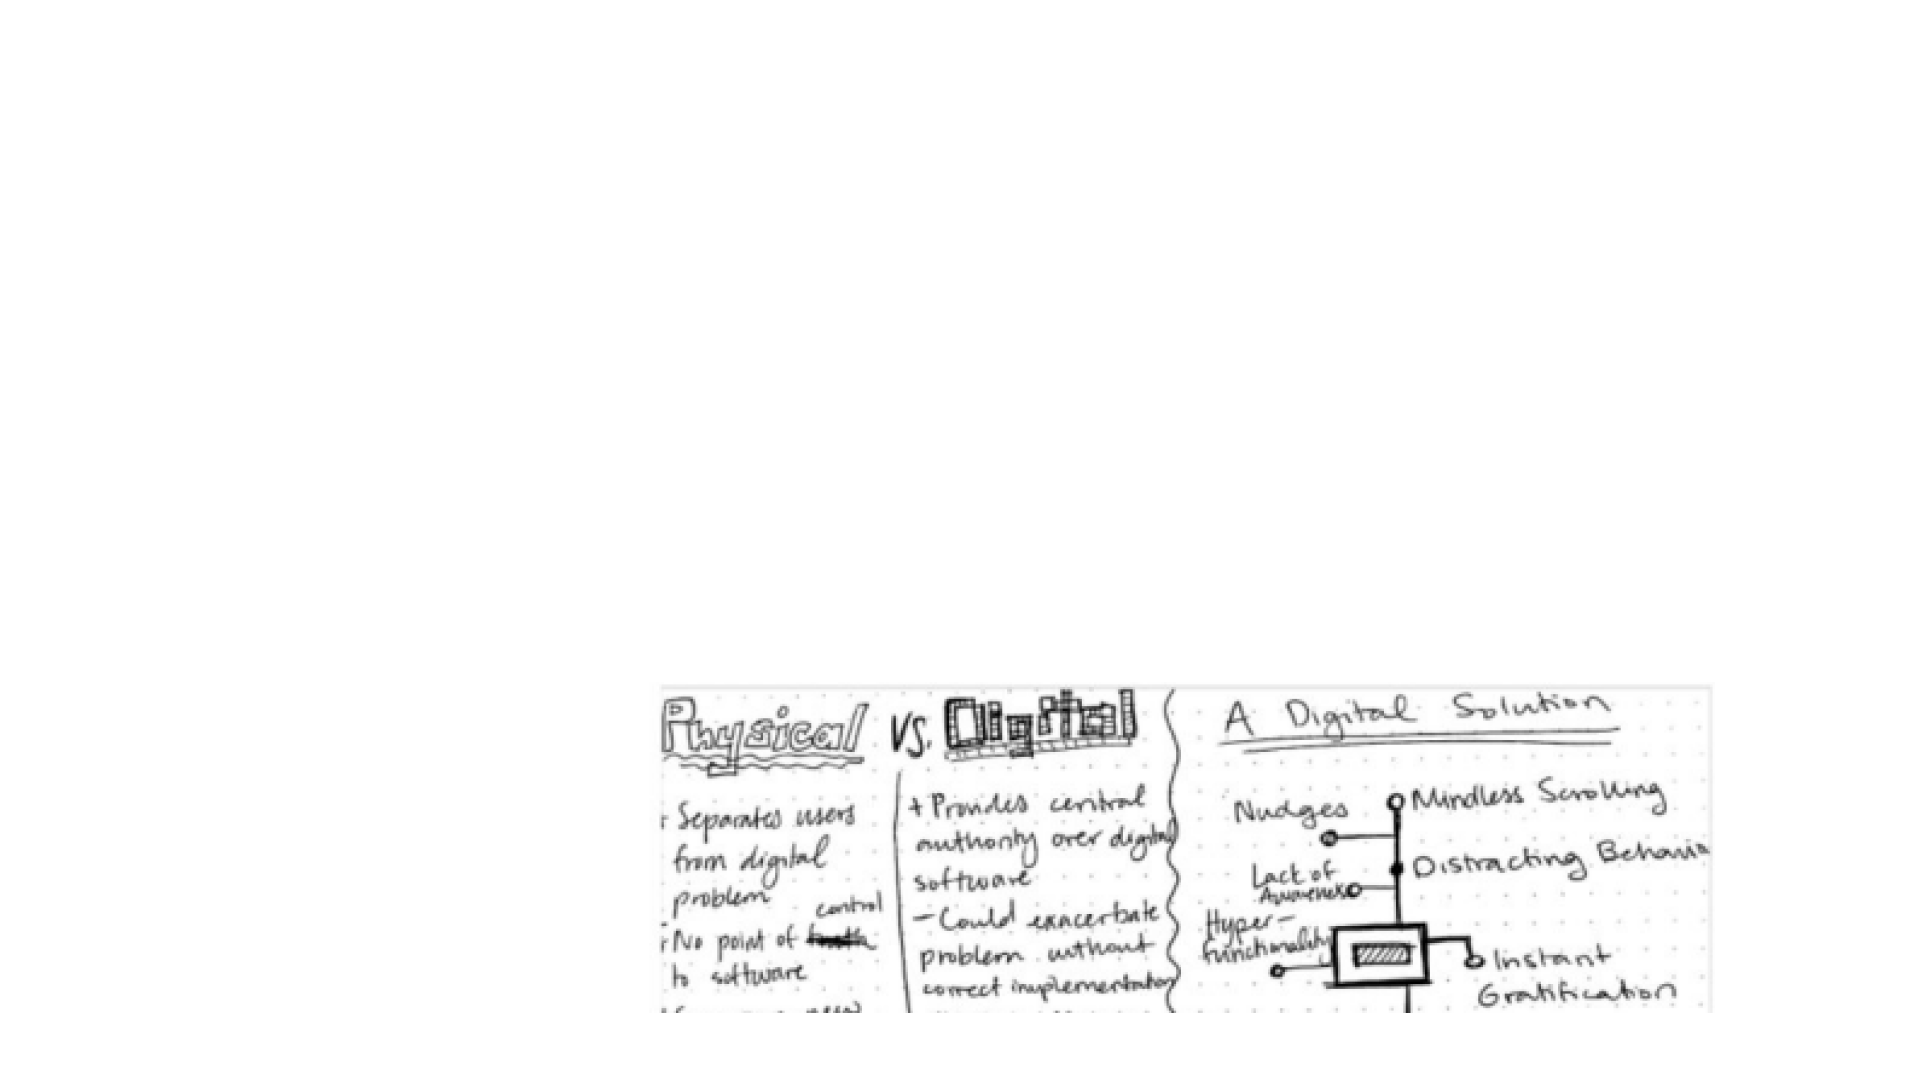 Physical VS. Digital
Separates users
from digital
problem
control
No point of
to software
+ Provides central
authority over digital
software
- Could exacerbate
problem without
correct implementation
A Digital Solution
Mindless Scrolling
Nudges
Distracting Behavio
Lack of
Awareness
Hyper-
functionality
Instant
Gratification